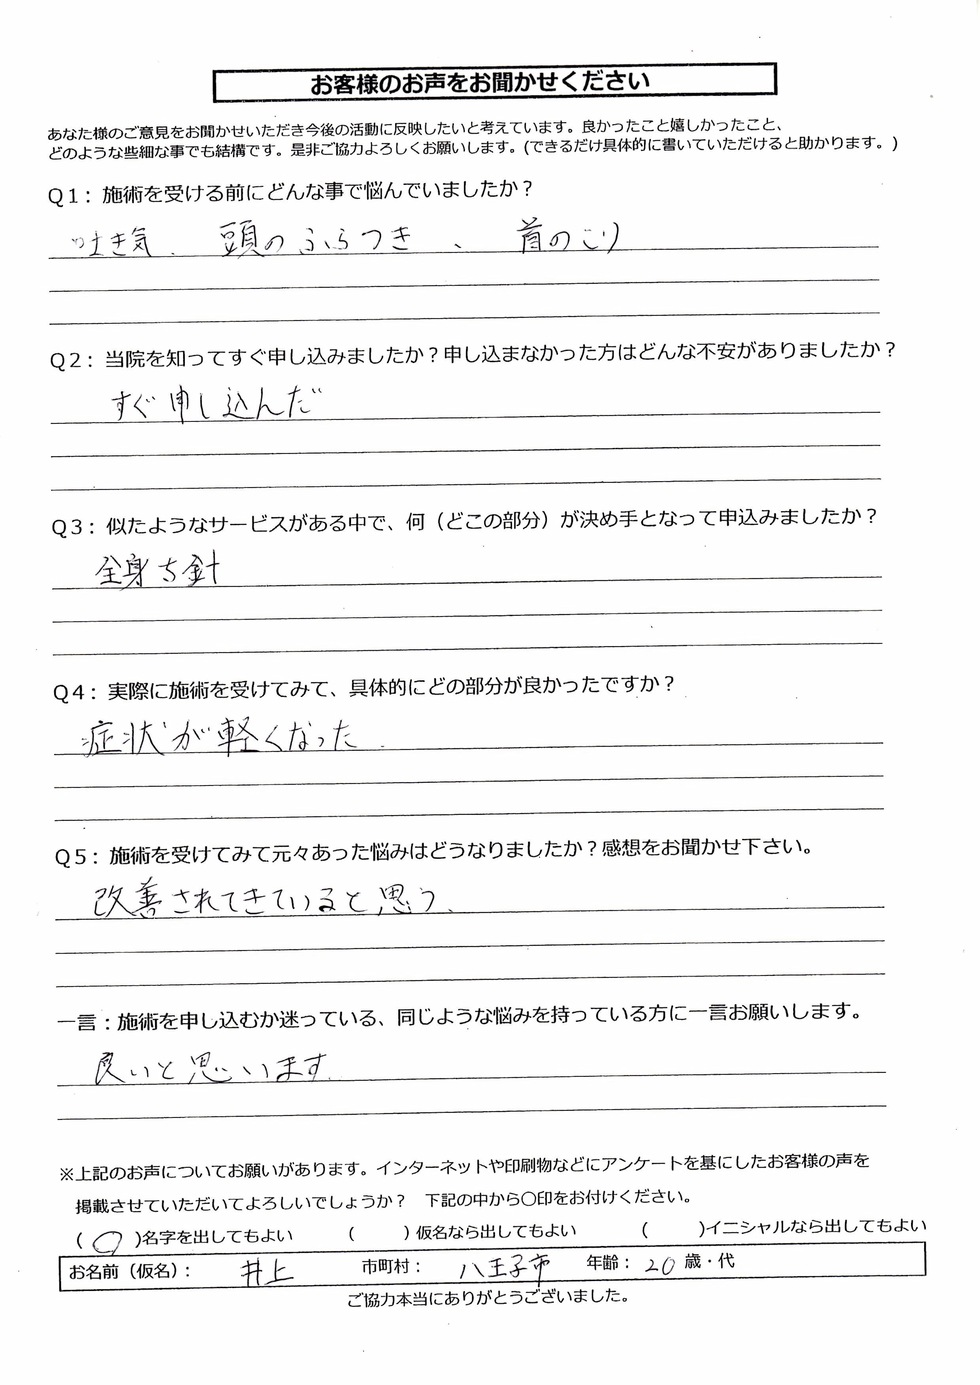 お客様のお声をお聞かせください
あなた様のご意見をお聞かせいただき今後の活動に反映したいと考えています。良かったこと嬉しかったこと、
どのような些細な事でも結構です。是非ご協力よろしくお願いします。(できるだけ具体的に書いていただけると助かります。)
Q1：施術を受ける前にどんな事で悩んでいましたか？
吐き気、頭のふらつき、首のこり
Q2：当院を知ってすぐ申し込みましたか？申し込まなかった方はどんな不安がありましたか？
すぐ申し込んだ
Q3：似たようなサービスがある中で、何（どこの部分）が決め手となって申込みましたか？
全身 針
Q4：実際に施術を受けてみて、具体的にどの部分が良かったですか？
症状が軽くなった．
Q5：施術を受けてみて元々あった悩みはどうなりましたか？感想をお聞かせ下さい。
改善されてきていると思う．
一言：施術を申し込むか迷っている、同じような悩みを持っている方に一言お願いします。
良いと思います．
※上記のお声についてお願いがあります。インターネットや印刷物などにアンケートを基にしたお客様の声を
掲載させていただいてよろしいでしょうか？　下記の中から〇印をお付けください。
(〇)名字を出してもよい　(　)仮名なら出してもよい　(　)イニシャルなら出してもよい
お名前（仮名）：井上　市町村：八王子市　年齢：20歳・代
ご協力本当にありがとうございました。